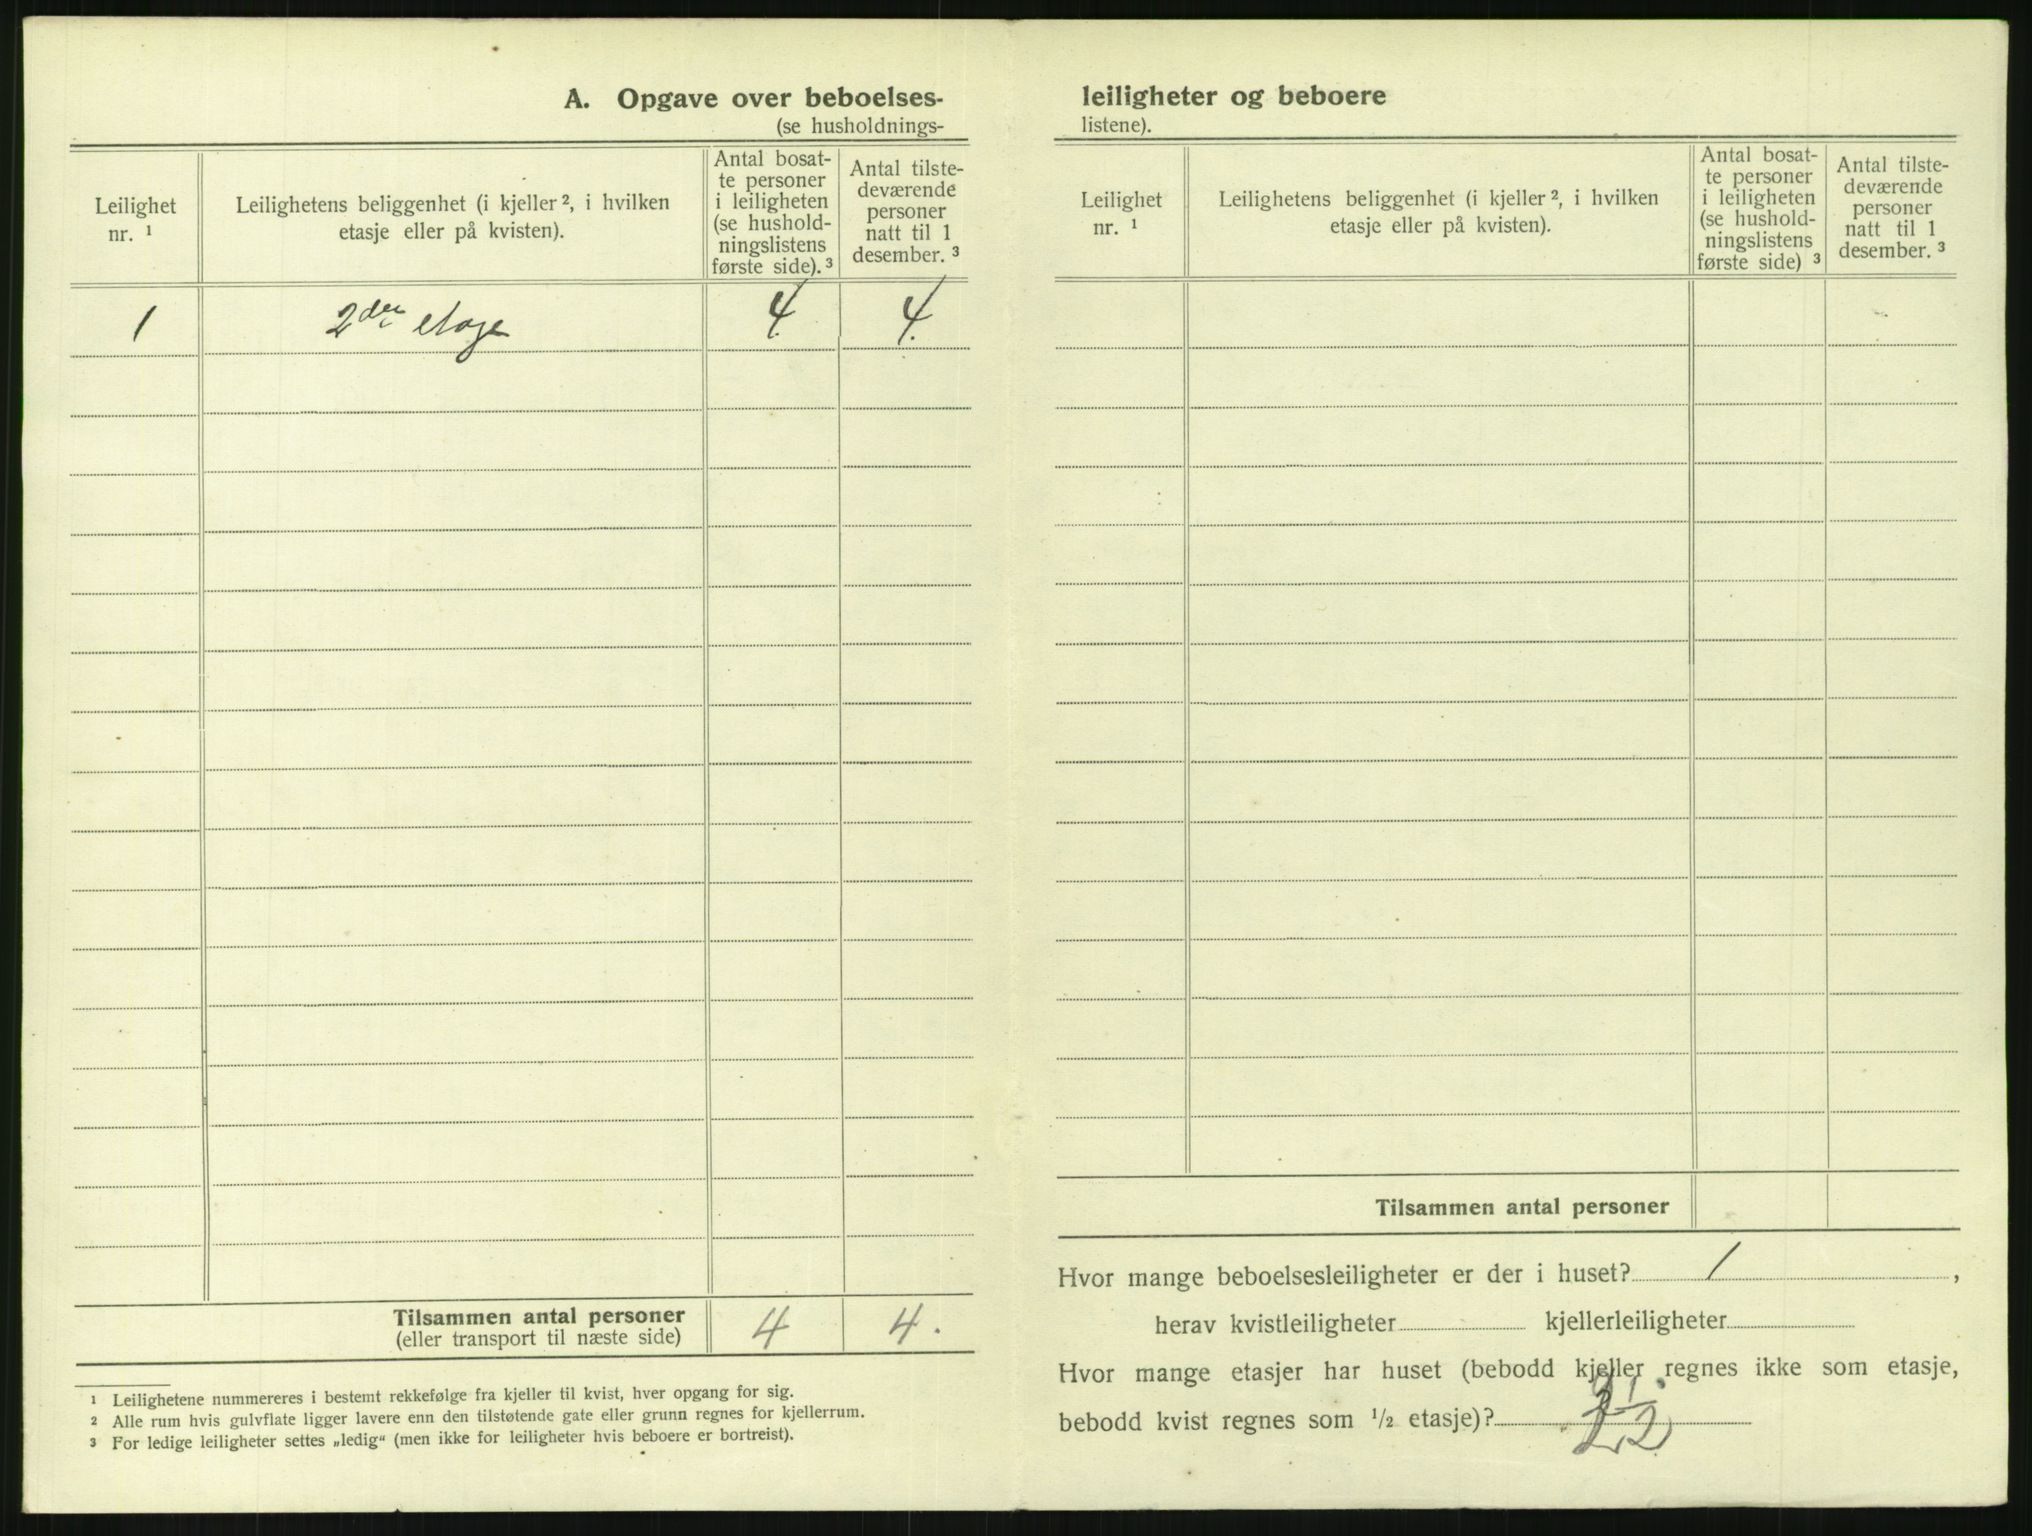 A. Opgave over beboelses-
(se husholdnings-
Leilighet
nr. ¹
Leilighetens beliggenhet (i kjeller ², i hvilken
etasje eller på kvisten).
Antal bosat-
te personer
i leiligheten
(se hushold-
ningslistens
første side). ³
Antal tilste-
deværende
personer
natt til 1
desember. ³
1 2den etage 4. 4.
Tilsammen antal personer
(eller transport til næste side)
4 4.
¹ Leilighetene nummereres i bestemt rekkefølge fra kjeller til kvist, hver opgang for sig.
² Alle rum hvis gulvflate ligger lavere enn den tilstøtende gate eller grunn regnes for kjellerrum.
³ For ledige leiligheter settes „ledig“ (men ikke for leiligheter hvis beboere er bortreist).
leiligheter og beboere
listene).
Leilighet
nr. ¹
Leilighetens beliggenhet (i kjeller ², i hvilken
etasje eller på kvisten).
Antal bosat-
te personer
i leiligheten
(se hushold-
ningslistens
første side) ³
Antal tilste-
deværende
personer
natt til 1
desember. ³
Tilsammen antal personer
Hvor mange beboelsesleiligheter er der i huset? 1,
herav kvistleiligheter kjellerleiligheter
Hvor mange etasjer har huset (bebodd kjeller regnes ikke som etasje,
bebodd kvist regnes som ½ etasje)?